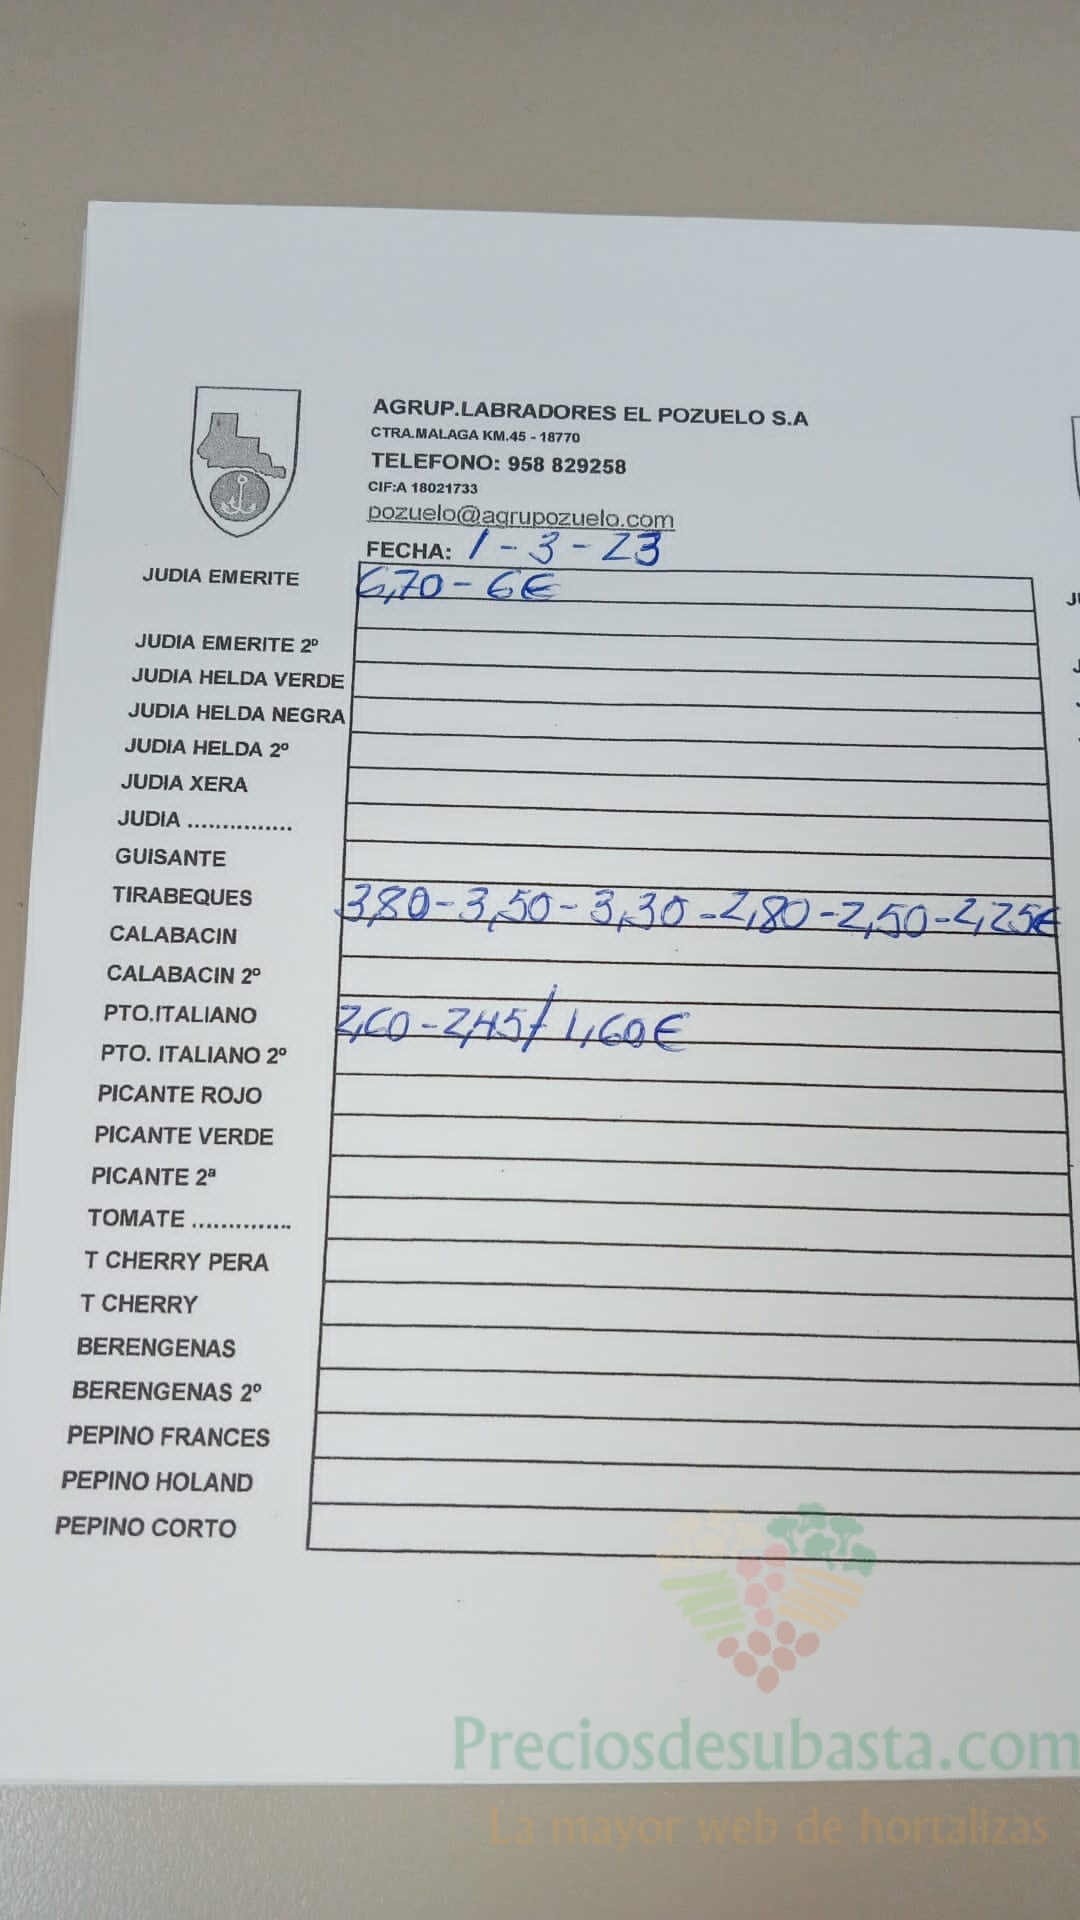 AGRUP.LABRADORES EL POZUELO S.A
CTRA.MALAGA KM.45 - 18770
TELEFONO: 958 829258
CIF:A 18021733
pozuelo@agrupozuelo.com
FECHA: 1-3-23
JUDIA EMERITE 6,70 - 6€
JUDIA EMERITE 2º
JUDIA HELDA VERDE
JUDIA HELDA NEGRA
JUDIA HELDA 2º
JUDIA XERA
JUDIA ...............
GUISANTE
TIRABEQUES 3,80 - 3,50 - 3,30 - 2,80 - 2,50 - 2,25€
CALABACIN
CALABACIN 2º
PTO.ITALIANO 2,60 - 2,45 / 1,60€
PTO. ITALIANO 2º
PICANTE ROJO
PICANTE VERDE
PICANTE 2ª
TOMATE ..............
T CHERRY PERA
T CHERRY
BERENGENAS
BERENGENAS 2º
PEPINO FRANCES
PEPINO HOLAND
PEPINO CORTO
Preciosdesubasta.com
La mayor web de hortalizas